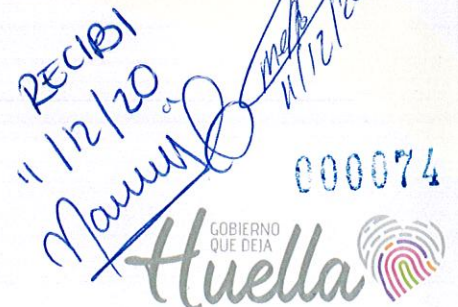 RECIBI
11/12/20
11/12/20
000074
GOBIERNO
QUE DEJA
Huella